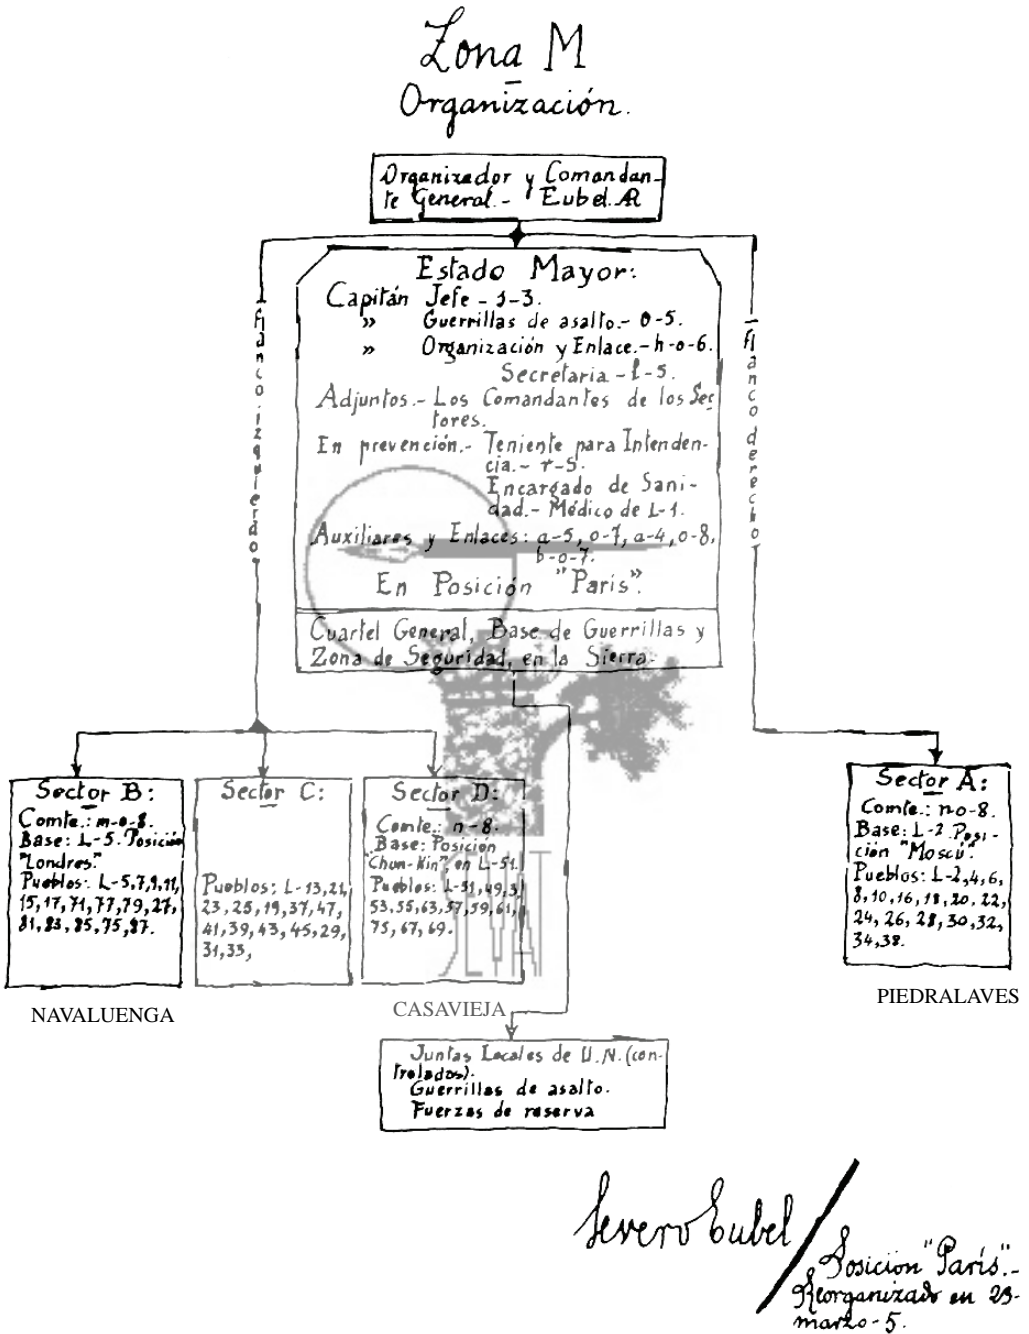 Zona M
Organización.
Organizador y Comandan-
te General.- Eubel. AR
Estado Mayor:
Capitán Jefe - 1-3.
» Guerrillas de asalto.- o-5.
» Organización y Enlace.- h-o-6.
Secretaria - l-5.
Adjuntos.- Los Comandantes de los Sec
tores.
En prevención.- Teniente para Intenden-
cia.- r-5.
Encargado de Sani-
dad.- Médico de L-1.
Auxiliares y Enlaces: a-5, o-7, a-4, o-8,
b-o-7.
En Posición "Paris".
Cuartel General, Base de Guerrillas y
Zona de Seguridad, en la Sierra.
flanco izquierdo
flanco derecho
Sector B:
Comte.: m-o-8.
Base: L-5. Posición
"Londres".
Pueblos: L-5,7,9,11,
15,17,71,77,79,27,
81,83,85,75,87.
NAVALUENGA
Sector C:
Pueblos: L-13,21,
23,25,19,37,47,
41,39,43,45,29,
31,33,
Sector D:
Comte.: n-8.
Base: Posición
"Chun-Kin" en L-51.
Pueblos: L-51,49,3,
53,55,63,57,59,61,
75,67,69.
CASAVIEJA
Sector A:
Comte.: n-o-8.
Base: L-2. Posi-
ción "Moscú".
Pueblos: L-2,4,6,
8,10,16,18,20,22,
24,26,28,30,32,
34,38.
PIEDRALAVES
Juntas Locales de U.N. (con-
trolados).
Guerrillas de asalto.
Fuerzas de reserva
Severo Eubel
Posición "París".-
Reorganizado en 23-
marzo-5.